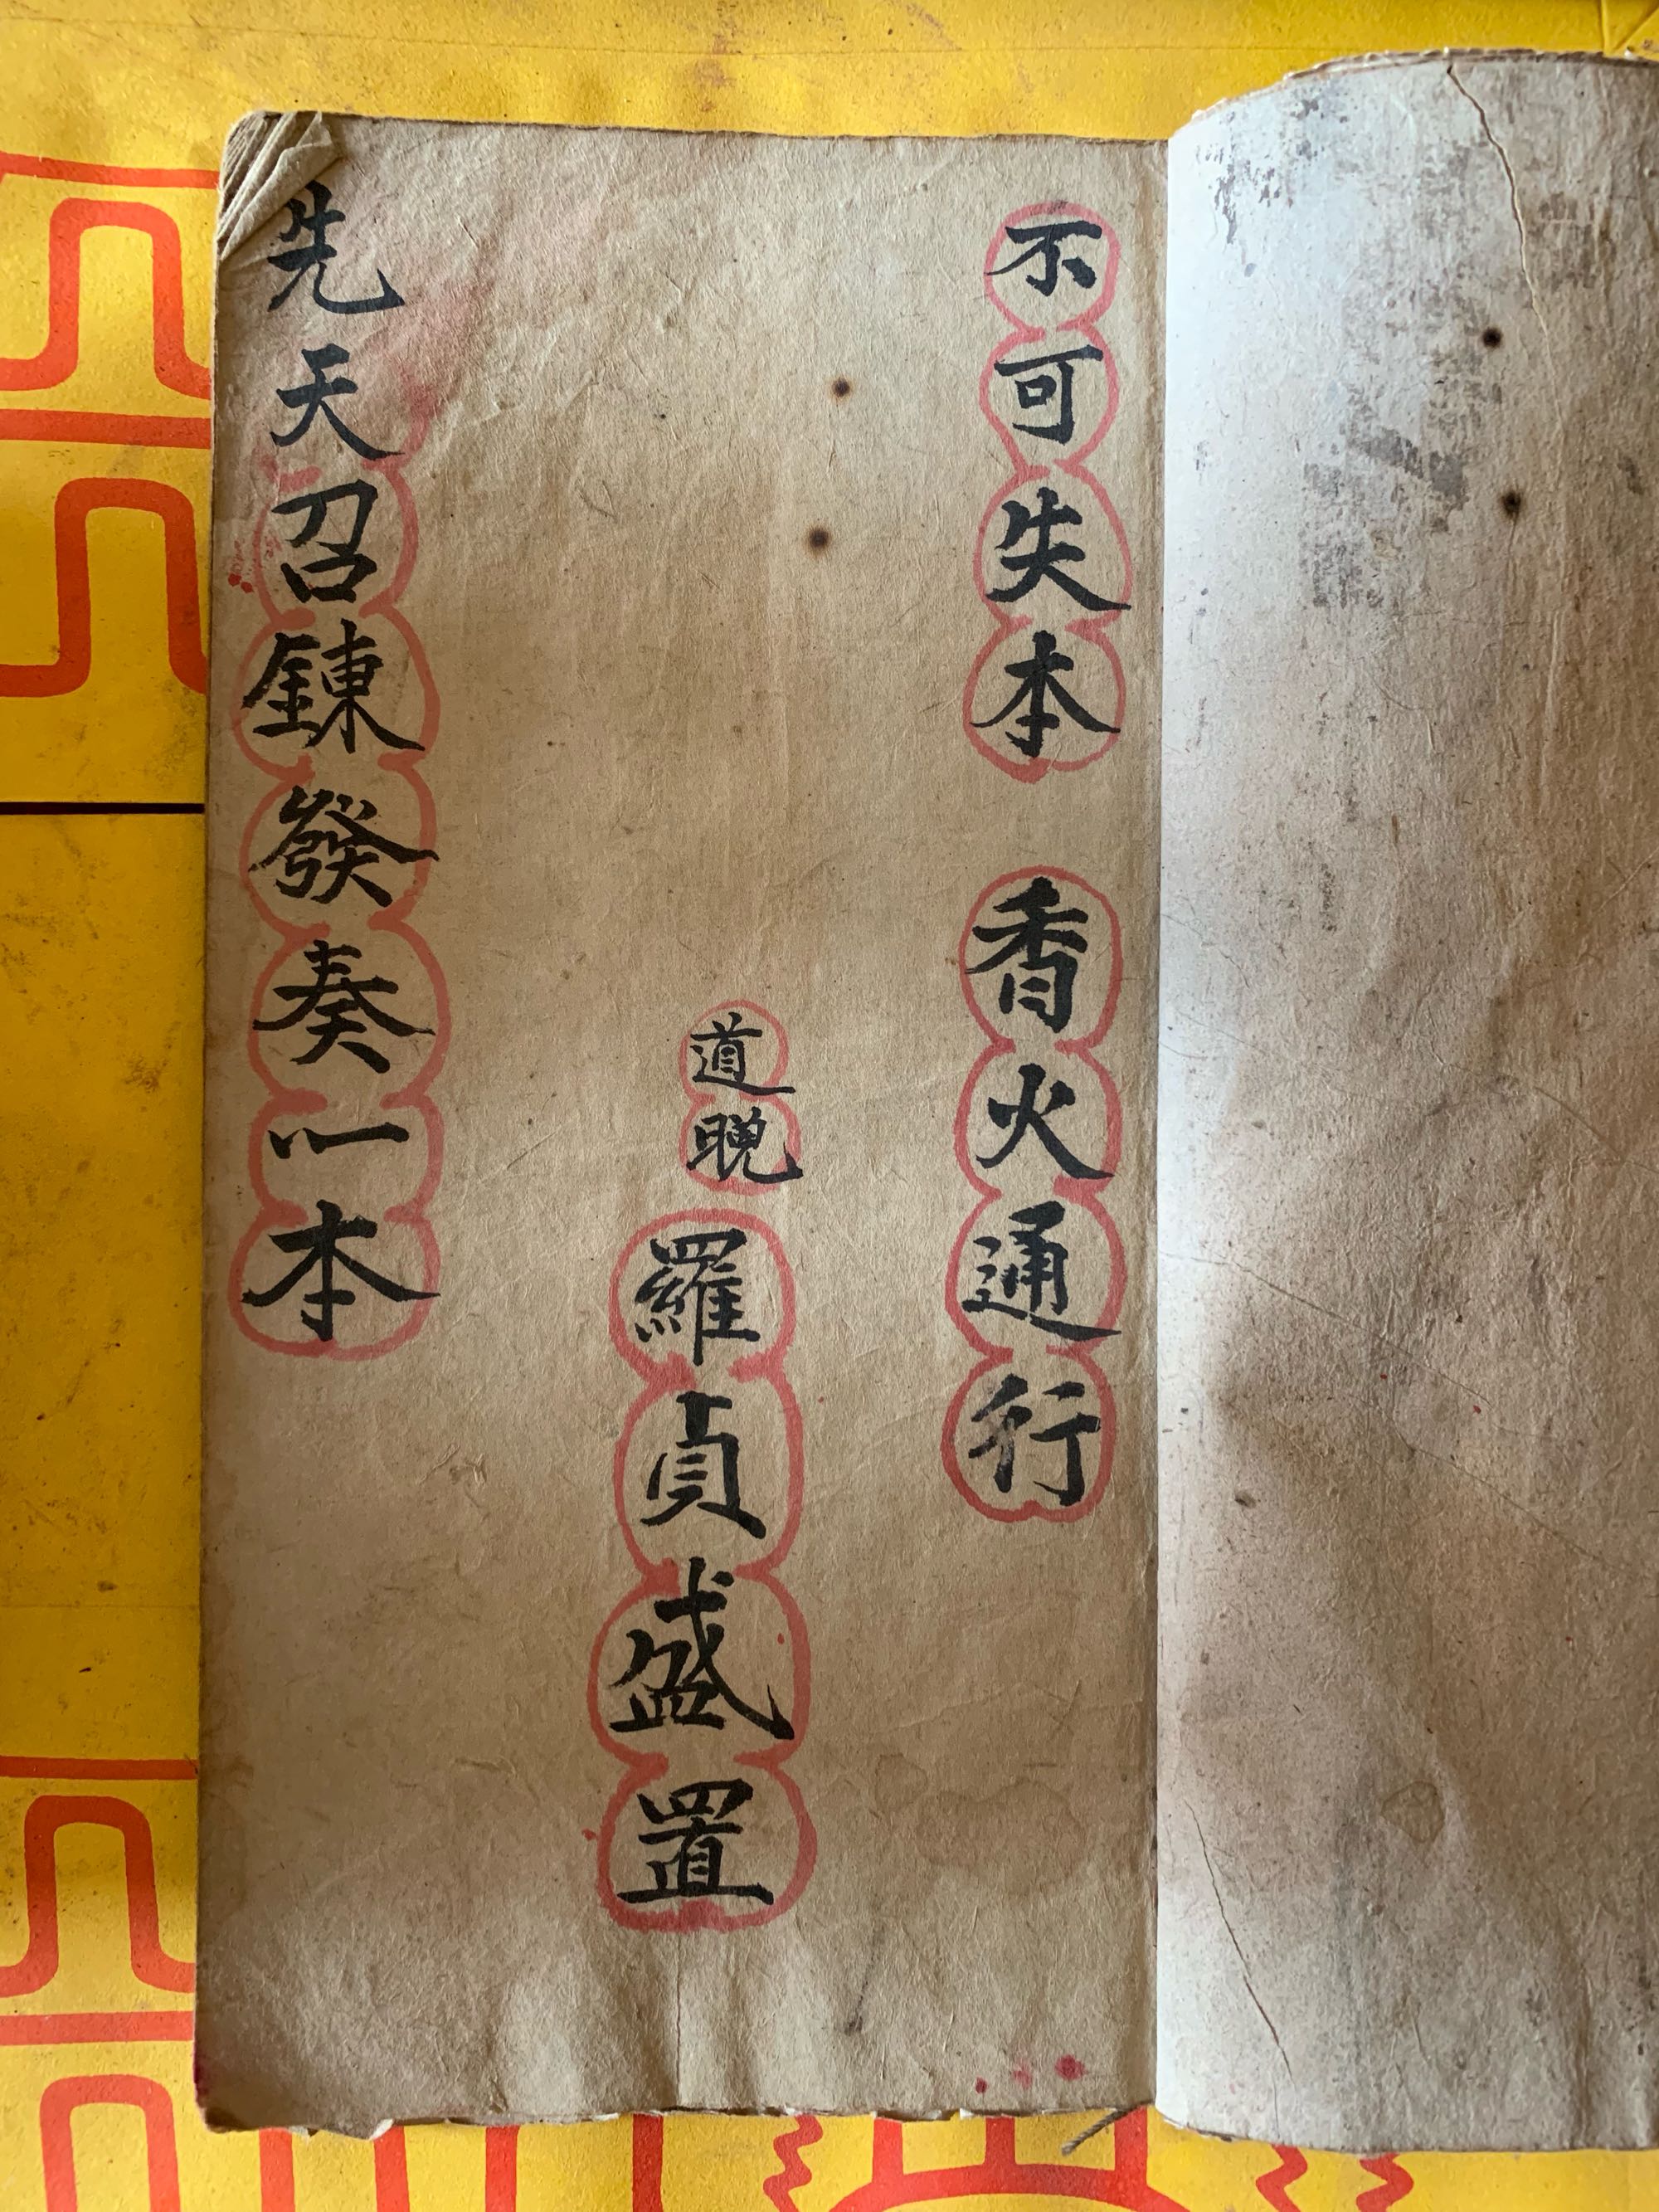 不可失本 香火通行
道晚 羅貞盛置
先天召鍊發奏一本